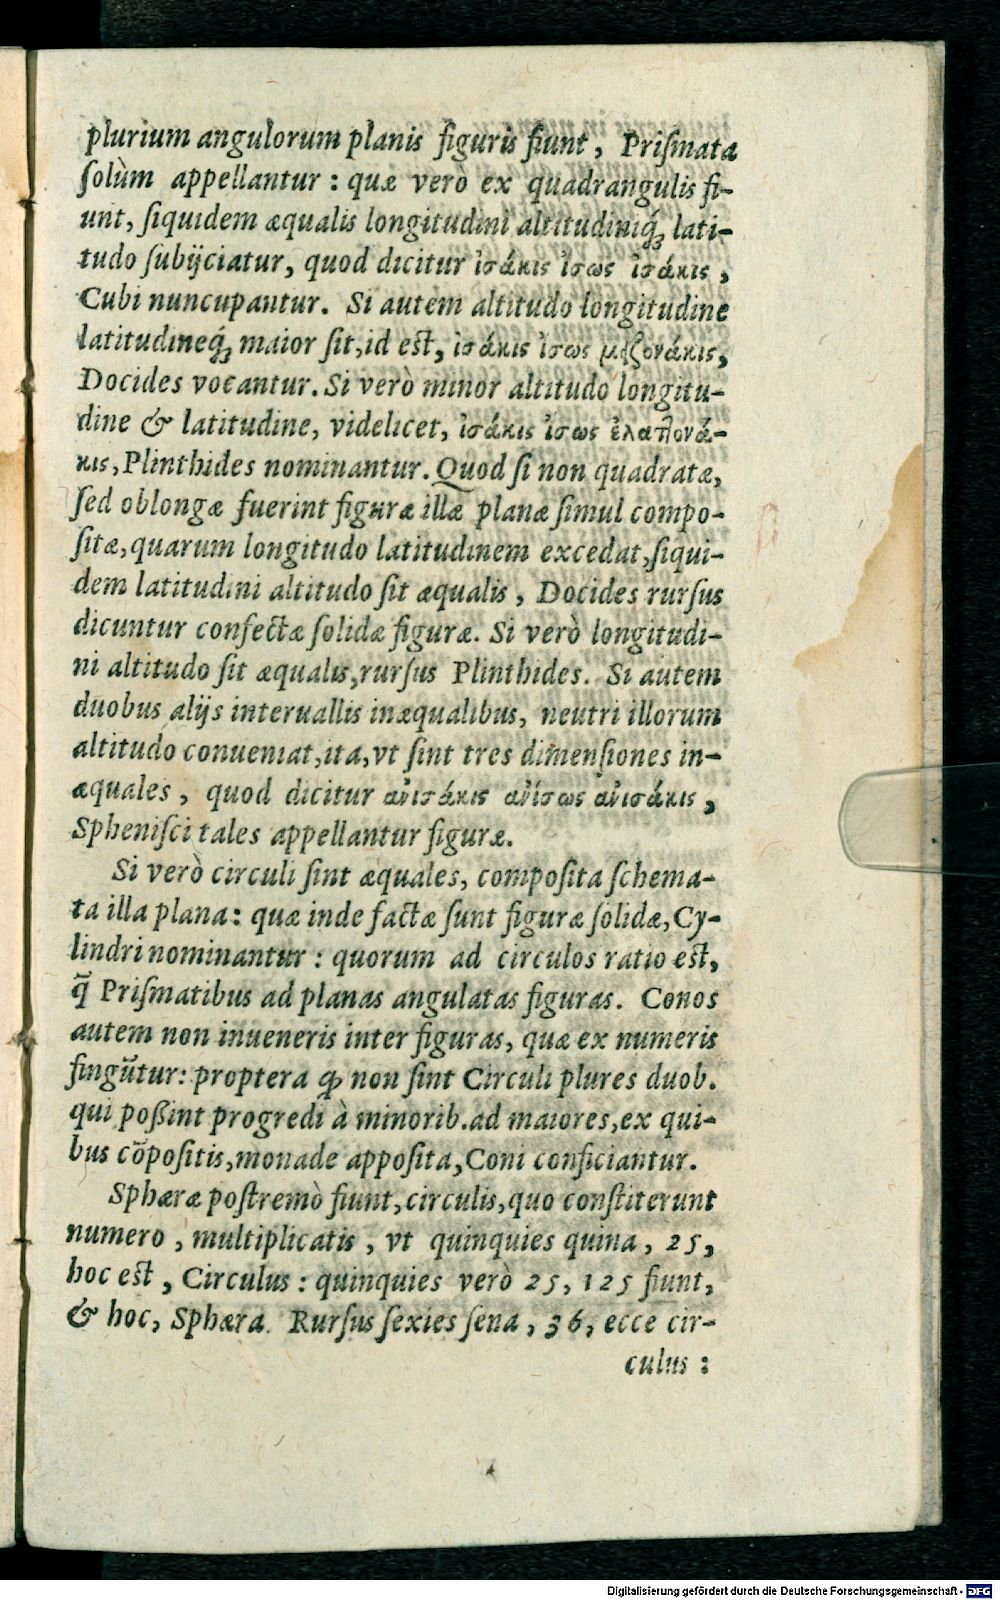 plurium angulorum planis figuris fiunt, Priſmata
ſolùm appellantur : quæ verò ex quadrangulis fi-
unt, ſiquidem æqualis longitudini altitudiniq́; lati-
tudo ſubijciatur, quod dicitur ἰσάκις ἴσως ἰσάκις,
Cubi nuncupantur. Si autem altitudo longitudine
latitudineq́; maior ſit, id eſt, ἰσάκις ἴσως μειζονάκις,
Docides vocantur. Si verò minor altitudo longitu-
dine & latitudine, videlicet, ἰσάκις ἴσως ἐλαττονά-
κις, Plinthides nominantur. Quod ſi non quadratæ,
ſed oblongæ fuerint figuræ illæ planæ ſimul compo-
ſitæ, quarum longitudo latitudinem excedat, ſiqui-
dem latitudini altitudo ſit æqualis, Docides rurſus
dicuntur confectæ ſolidæ figuræ. Si verò longitudi-
ni altitudo ſit æqualis, rurſus Plinthides. Si autem
duobus alijs interuallis inæqualibus, neutri illorum
altitudo conueniat, ita, vt ſint tres dimenſiones in-
æquales, quod dicitur ἀνισάκις ἀνίσως ἀνισάκις,
Spheniſci tales appellantur figuræ.
Si verò circuli ſint æquales, compoſita ſchema-
ta illa plana: quæ inde factæ ſunt figuræ ſolidæ, Cy-
lindri nominantur : quorum ad circulos ratio eſt,
q̃ Priſmatibus ad planas angulatas figuras. Conos
autem non inueneris inter figuras, quæ ex numeris
fingũtur: propterea ꝙ non ſint Circuli plures duob.
qui poßint progredi à minorib. ad maiores, ex qui-
bus cõpoſitis, monade appoſita, Coni conficiantur.
Sphæræ poſtremò fiunt, circulis, quo conſtiterunt
numero, multiplicatis, vt quinquies quina, 25,
hoc eſt, Circulus : quinquies verò 25, 125 fiunt,
& hoc, Sphæra. Rurſus ſexies ſena, 36, ecce cir-
culus :
Digitalisierung gefördert durch die Deutsche Forschungsgemeinschaft - DFG